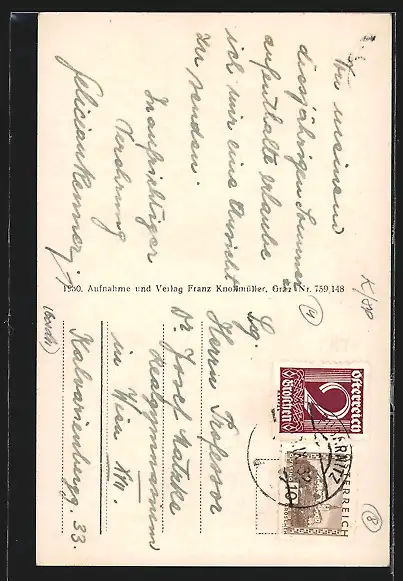 An meinem
diesjährigen Sommer
aufenthalte erlaube
ich mir eine Ansicht
zu senden.
In aufrichtiger
Verehrung
1930. Aufnahme und Verlag Franz Knollmüller, Graz Nr. 759,148
Sg.
Herrn Professor
Dr. Josef
Realgymnasium
in Wien XVII.
Kalvarienbergg. 33.
Österreich
2
Groschen
ÖSTERREICH
10